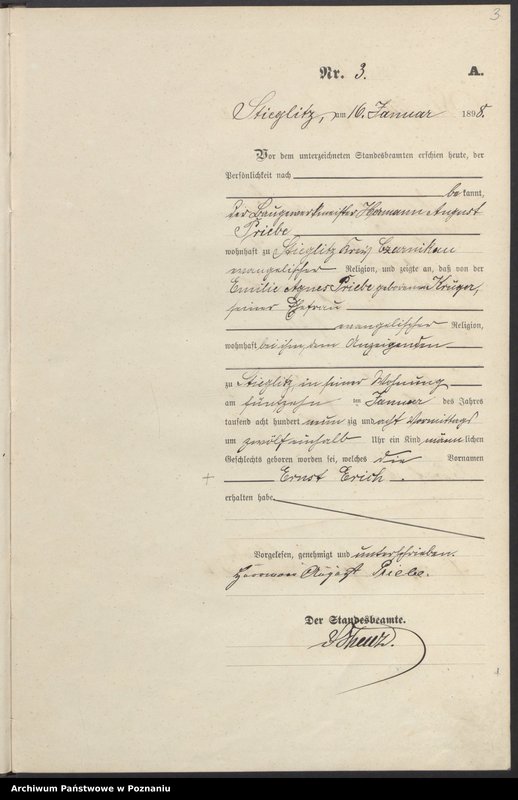 3
Nr. 3. A.
Stieglitz, am 16. Januar 1898.
Vor dem unterzeichneten Standesbeamten erschien heute, der
Persönlichkeit nach
be kannt,
der Baugewerksmeister Hermann August
Priebe
wohnhaft zu Stieglitz Kreis Czarnikau
evangelischer Religion, und zeigte an, daß von der
Emilie Agnes Priebe geborenen Krüger,
seiner Ehefrau
evangelischer Religion,
wohnhaft bei ihm, dem Anzeigenden
zu Stieglitz, in seiner Wohnung,
am fünfzehn ten Januar des Jahres
tausend acht hundert neun zig und acht Vormittags
um zwölfeinhalb Uhr ein Kind männ lichen
Geschlechts geboren worden sei, welches die Vornamen
Ernst Erich.
erhalten habe.
Vorgelesen, genehmigt und unterschrieben.
Hermann August Priebe.
Der Standesbeamte.
Archiwum Państwowe w Poznaniu